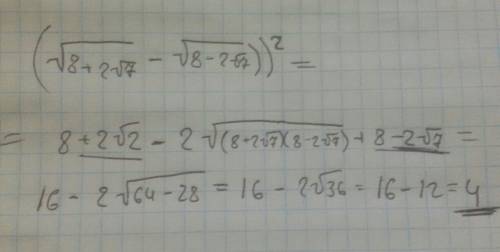 (√(8+2√7) − √(8−2√7))² =
= 8+2√2 − 2√((8+2√7)(8−2√7)) + 8−2√7 =
16 − 2√(64−28) = 16 − 2√36 = 16−12 = 4